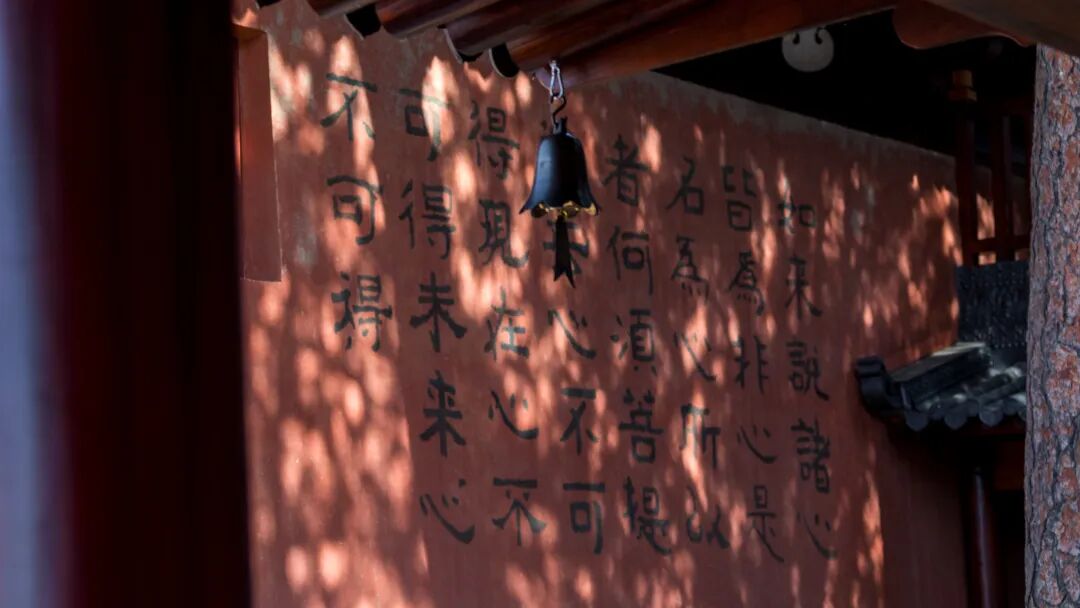 如来說諸心
皆為非心是
名為心所以
者何須菩提
心不可
得現在心不
可得未来心
不可得